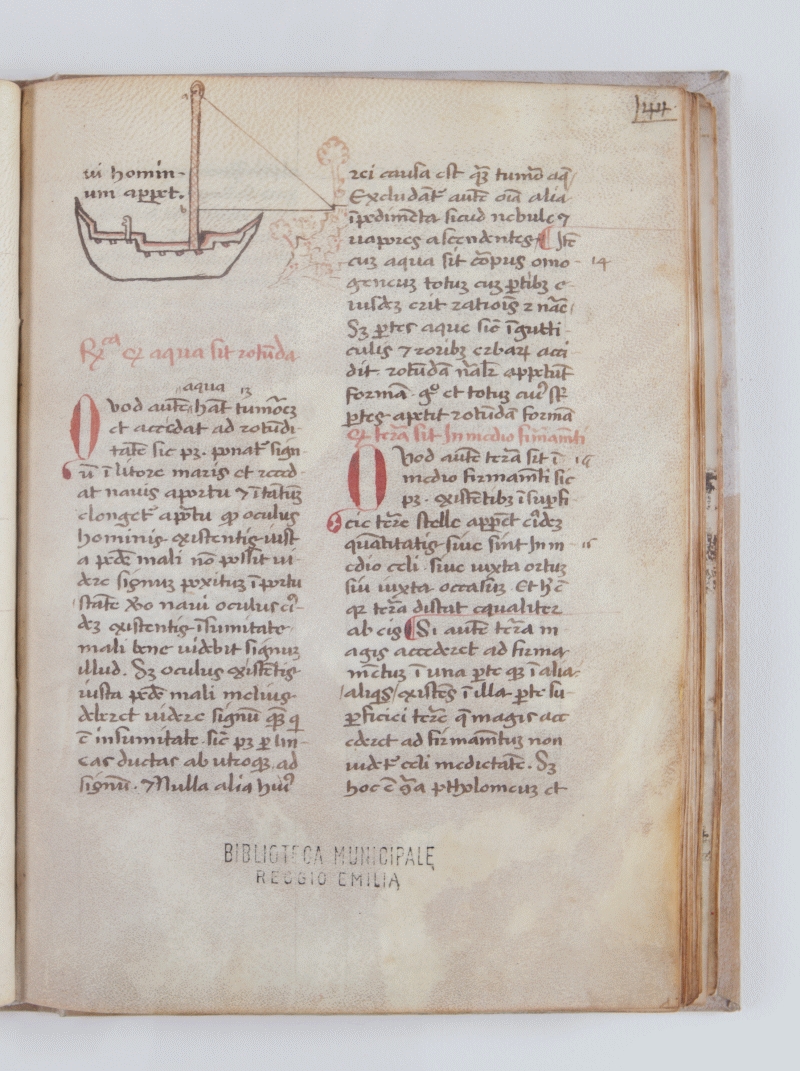 144
ui homin-
um appet.
R̄ca q̄ aqua sit rotūda
aqua
Quod autē hāt tumorēz
et accedat ad rotūdi
tatē sic pz. ponat sign
ū ī litore maris et reced
at nauis aportu ⁊ ītātūz
elonget aptu qp oculus
hominis existentis iust
a pedē mali nō possit ui-
dere signuz poxituz īportu
stāte xbo naui oculus ei-
dez existentis īsumitate
mali bene uidebit signuz
illud. Sz oculus existētis
iusta pedē mali melius
deberet uidere signū qz q
ē insumitate sic pz p lin-
eas ductas ab utroqz ad
signū. ⁊ Nulla alia huī
rei causa est qz tumō aq
Excludāt autē oīa alia
īpedimēta sicud nebule ⁊
uapores ascendentes Itē
cuz aqua sit cōpus omo- 14
geneuz totuz cuz ptibz e-
iusdez erit ratiois z nāe
Sz ptes aque sic ī gutti-
culis ⁊ roribz erbarz acci
dit rotūdā nālr appetūt
formā. gō et totuz cuī st
ptes apetit rotūdā formā
q terā sit In medio firmamti
Quod autē terā sit ī
medio firmamti sic
pz. existētibz ī supfi
cie tēre stelle appēt eidēz
quātitatis siue sint In m-
edio celi siue iuxta ortuz
siu iuxta occasūz. Et h ē
qr terā distat equaliter
ab eis Si autē tēra m
agis accederet ad firma-
mētuz ī una pte qz ī alia
aliqs existēs ī illa pte su-
pficiei tēre q magis acc
ederet ad firmamētuz non
uidet celi medietatē. Sz
hoc ē ɔ̄a ptholomeuz et
BIBLIOTECA MUNICIPALE
REGGIO EMILIA